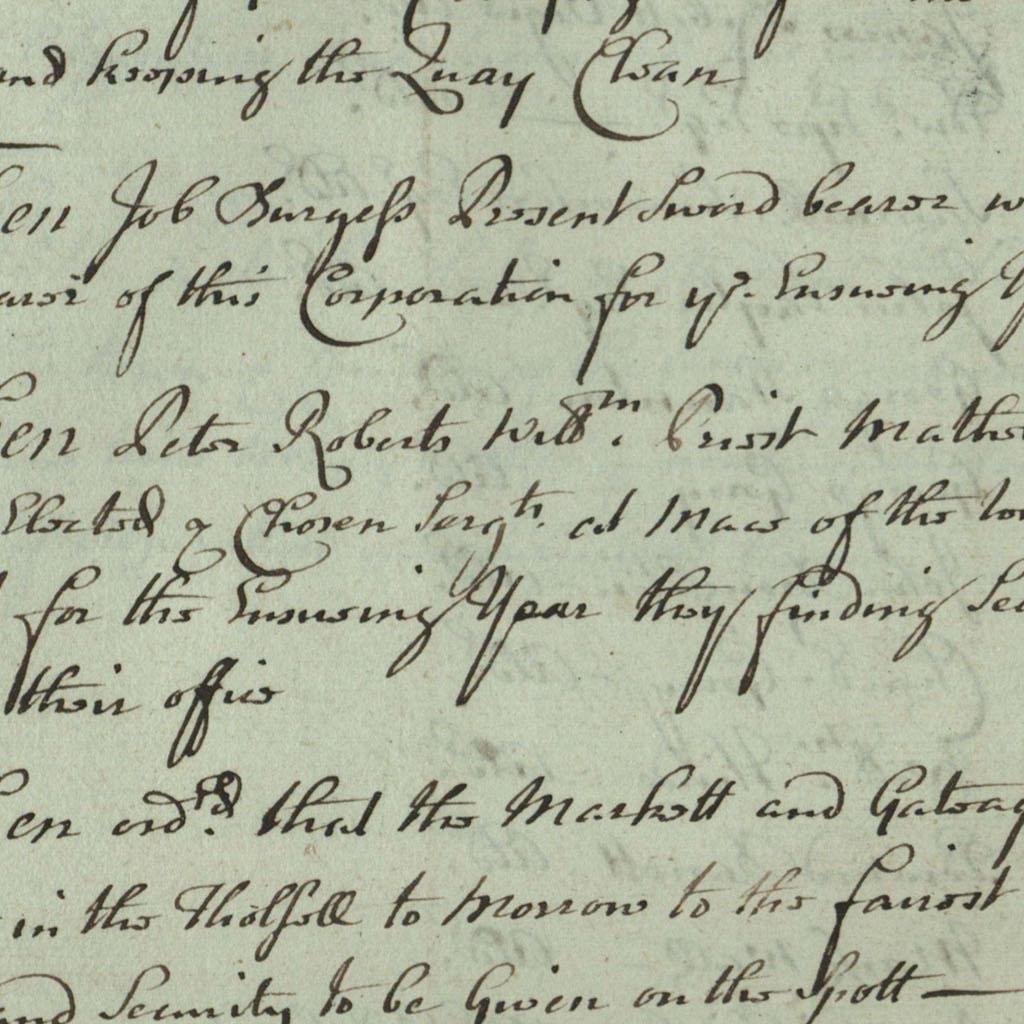 and keeping the Quay Clean
en Job Burgess Present Sword bearer
of this Corporation for ye. Ensueing
en Peter Roberts Willm. Priest Mathew
Elected & Chosen Sergts. at Mace of the
for the Ensueing Year they finding
their office
en ordrd. that the Markett and Gateag
in the Tholsell to Morrow to the fairest
and Security to be Given on the Spott —